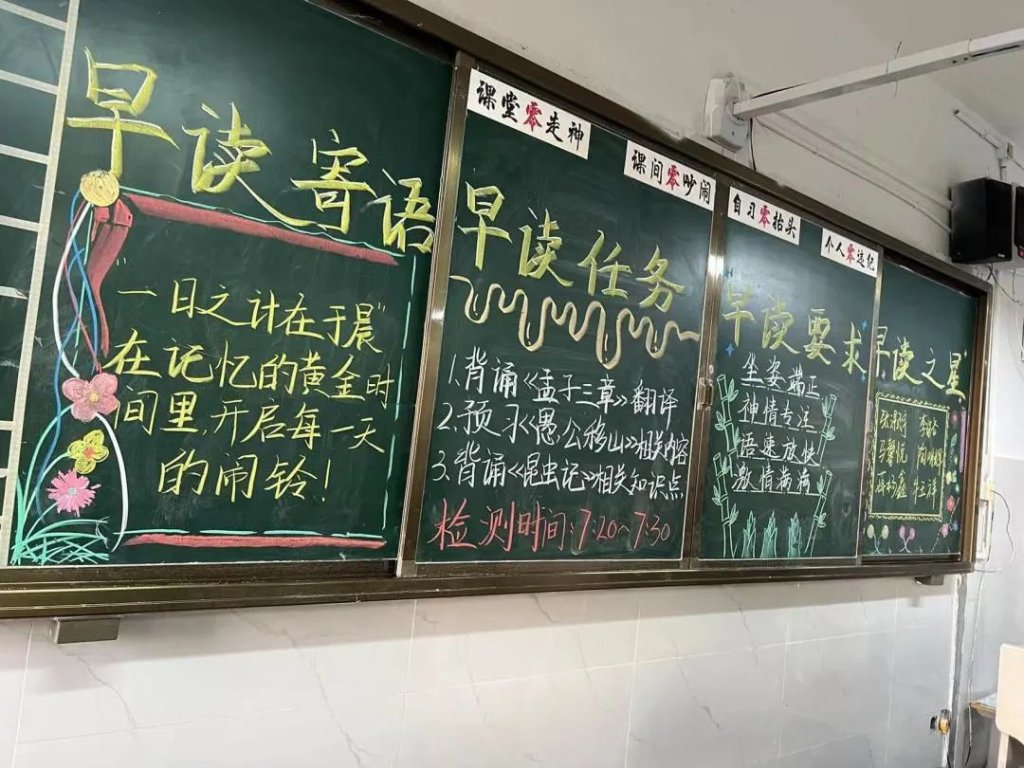 课堂零走神
课间零吵闹
自习零抬头
个人零违纪
早读寄语
"一日之计在于晨"
在记忆的黄金时
间里,开启每一天
的闹铃!
早读任务
1.背诵《孟子三章》翻译
2.预习《愚公移山》相关内容
3.背诵《昆虫记》相关知识点
检测时间:7:20~7:30
早读要求
坐姿端正
神情专注
语速放快
激情满满
早读之星